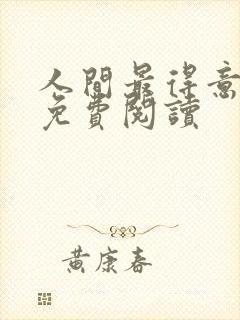 人間最得意
免費閱讀
黃康春